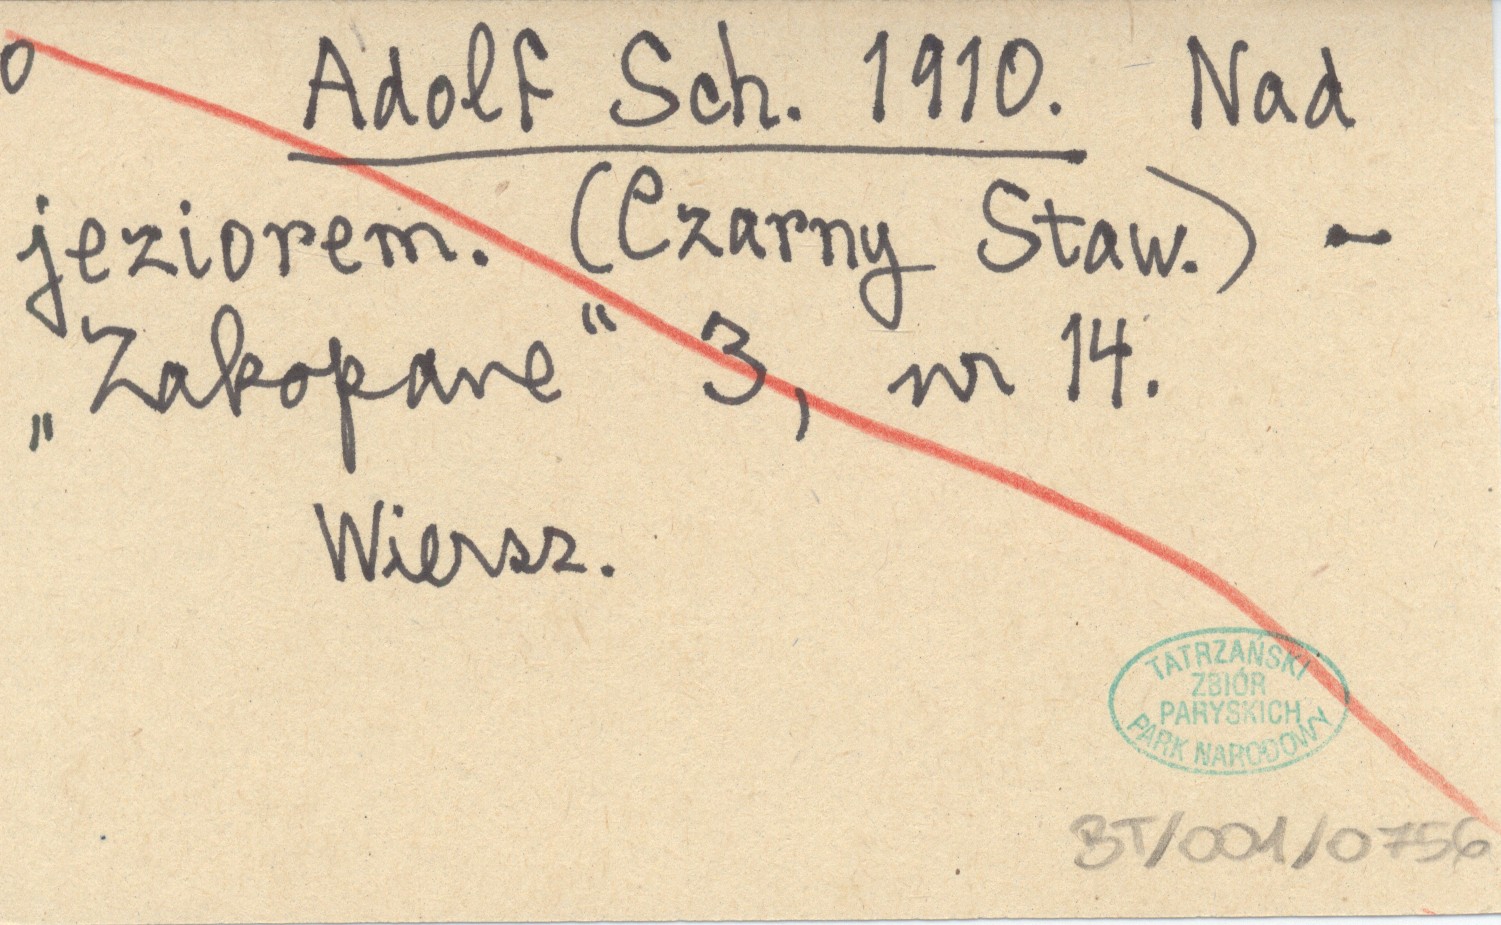 o Adolf Sch. 1910. Nad
jeziorem. (Czarny Staw.) -
„Zakopane“ 3, nr 14.
Wiersz.
TATRZAŃSKI
ZBIÓR
PARYSKICH
PARK NARODOWY
BT/001/0756